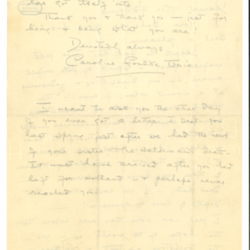 has got itself into
Thank you & thank you — just for
being & being what you are!
Devotedly always
Caroline
I meant to ask you the other day
if you ever got a letter I sent you
last spring just after we had the news
of your sister's death.
It must have arrived after you had
left for & perhaps never
reached you.